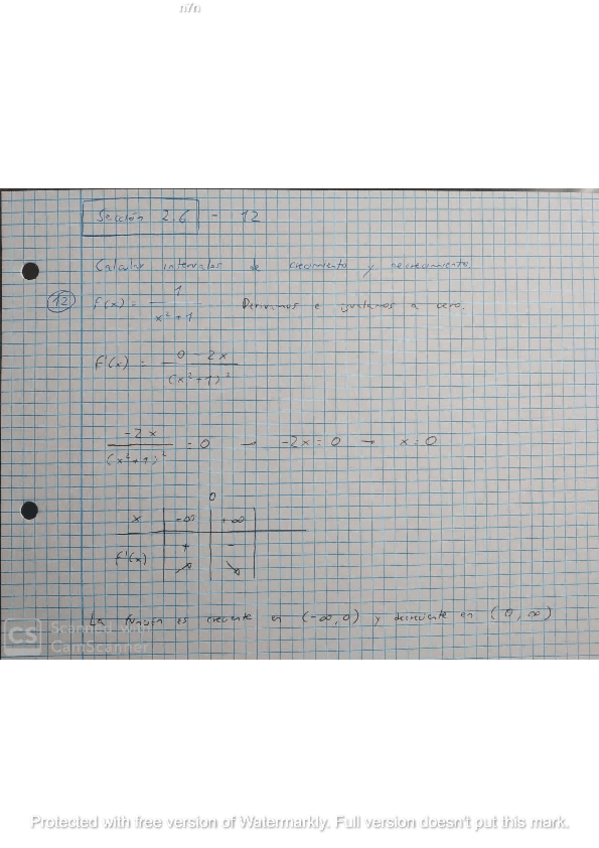 n/n
Sección 2.6 - 12
Calcular intervalos de crecimiento y decrecimiento
12 f(x) = 1 / x² + 1 Derivamos e igualamos a cero.
f'(x) = 0 - 2x / (x² + 1)²
-2x / (x² + 1)² = 0 → -2x = 0 → x = 0
0
x | -∞ | +∞
f'(x) | + | -
↗ | ↘
La función es creciente en (-∞, 0) y decreciente en (0, ∞)
CS Scanned with
CamScanner
Protected with free version of Watermarkly. Full version doesn't put this mark.